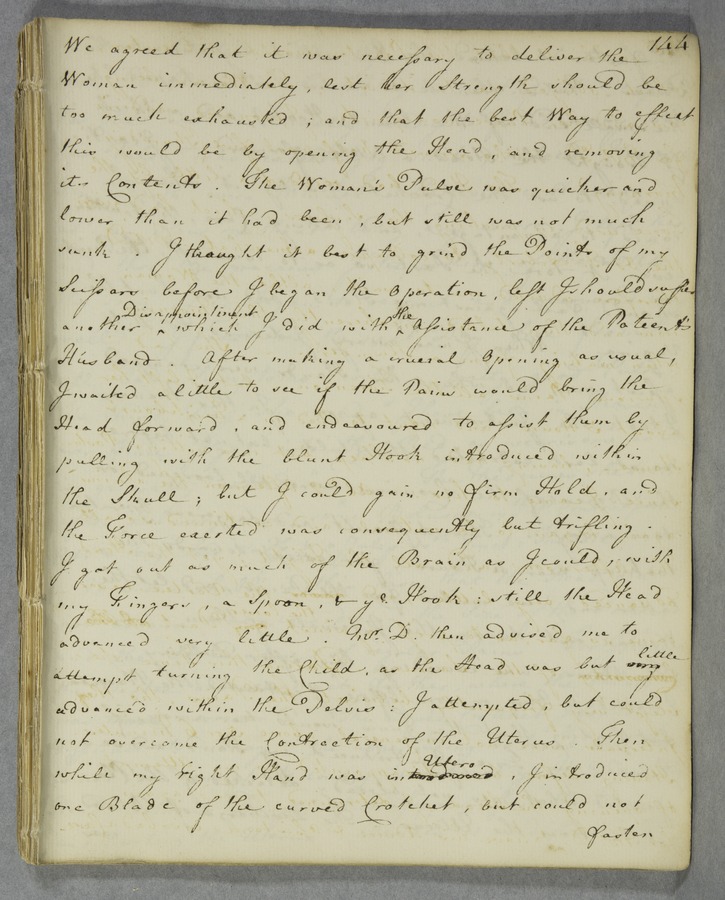 144
We agreed that it was necessary to deliver the
Woman immediately, lest her Strength should be
too much exhausted; and that the best Way to effect
this would be by opening the Head, and removing
its Contents. The Woman's Pulse was quicker and
lower than it had been, but still was not much
sunk. I thought it best to grind the Points of my
Scissars before I began the Operation, lest I should suffer
another Disappointment which I did with the Assistance of the Patient's
Husband. After making a crucial Opening as usual,
I waited a little to see if the Pains would bring the
Head forward, and endeavoured to assist them by
pulling with the blunt Hook introduced within
the Skull; but I could gain no firm Hold, and
the Force exerted was consequently but trifling.
I got out as much of the Brain as I could, with
my Fingers, a Spoon, & ye. Hook: still the Head
advanced very little. Mr. D. then advised me to
attempt turning the Child, as the Head was but little
advanced within the Pelvis: I attempted, but could
not overcome the Contraction of the Uterus. Then
while my right Hand was in Utero, I introduced
one Blade of the curved Crotchet, but could not
fasten